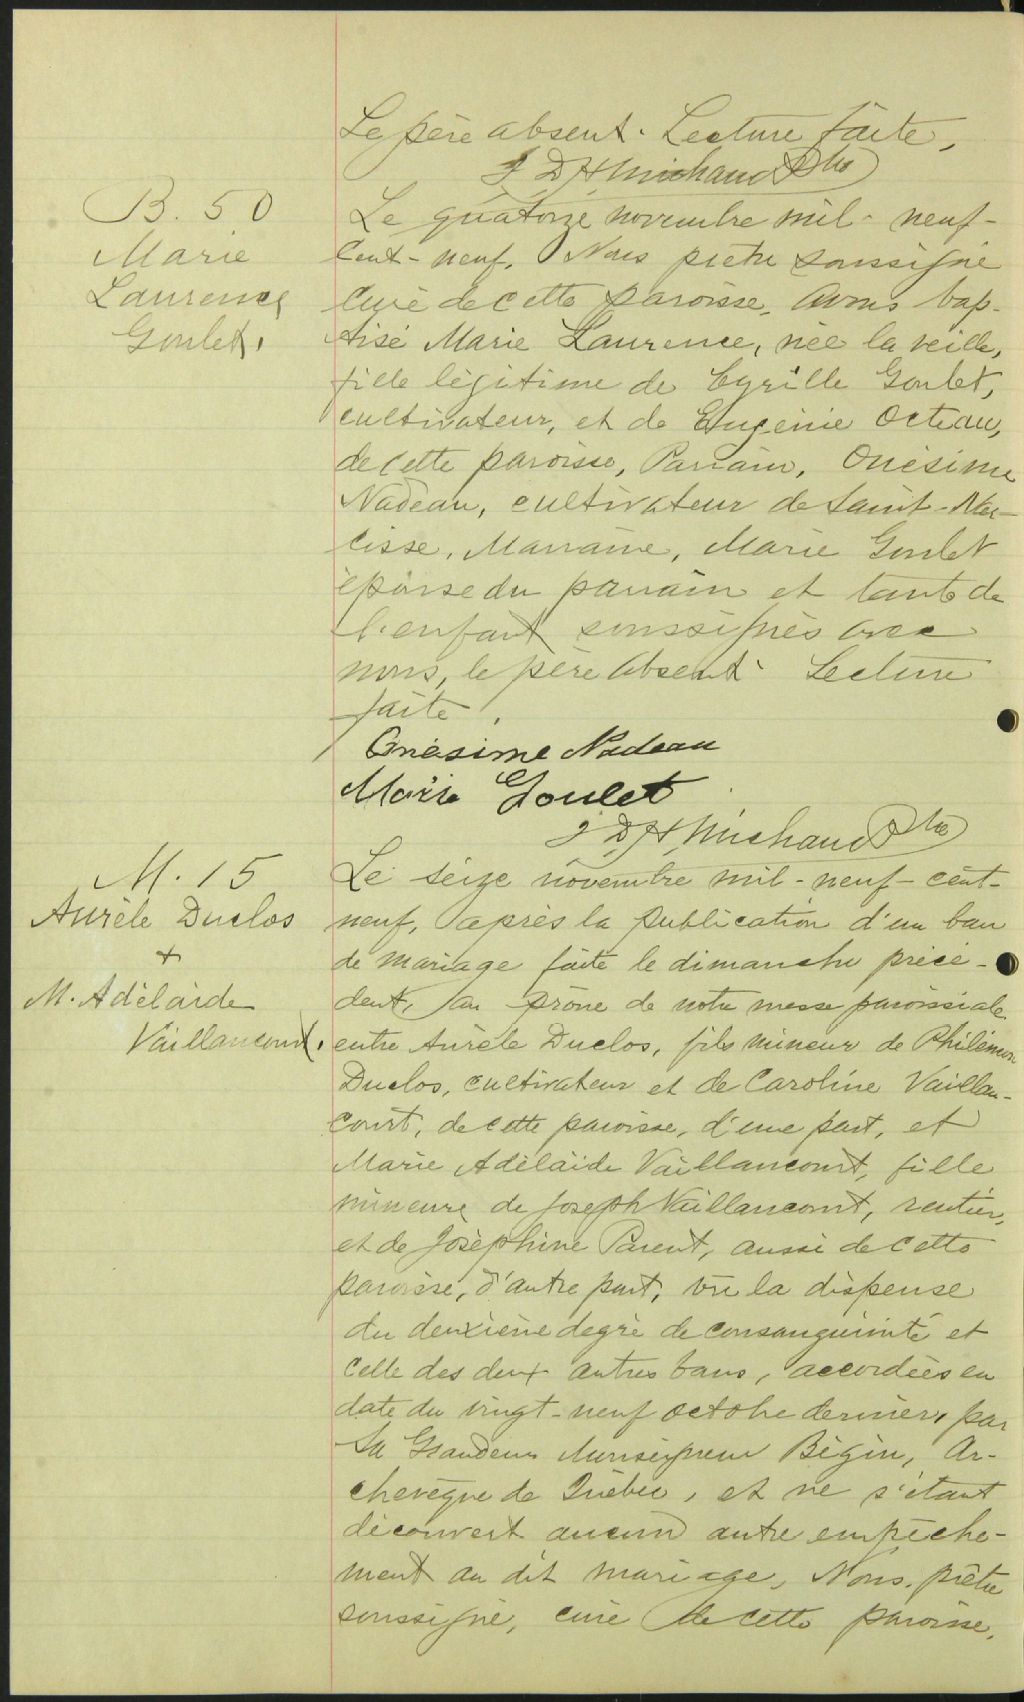 Le père absent. Lecture faite,
J D H Michaud Ptre
B. 50
Marie
Laurence
Goulet.
Le quatorze novembre mil-neuf-
cent-neuf. Nous prêtre soussigné
curé de cette paroisse, avons bap-
tisé Marie Laurence, née la veille,
fille légitime de Cyrille Goulet,
cultivateur, et de Eugénie Octeau,
de cette paroisse, Parrain, Onésime
Nadeau, cultivateur de Saint-Nar-
cisse, Marraine, Marie Goulet
épouse du parrain et tante de
l'enfant soussignés avec
nous, le père absent. Lecture
faite.
Onésime Nadeau
Marie Goulet
J D H Michaud Ptre
M. 15
Aurèle Duclos
+
M. Adélaïde
Vaillancourt.
Le seize novembre mil-neuf-cent-
neuf, après la publication d'un ban
de mariage faite le dimanche précé-
dent, au prône de notre messe paroissiale
entre Aurèle Duclos, fils mineur de Philémon
Duclos, cultivateur et de Caroline Vaillan-
court, de cette paroisse, d'une part, et
Marie Adélaïde Vaillancourt, fille
mineure de Joseph Vaillancourt, rentier,
et de Joséphine Parent, aussi de cette
paroisse, d'autre part, vu la dispense
du deuxième degré de consanguinité et
celle des deux autres bans, accordées en
date du vingt-neuf octobre dernier, par
Sa Grandeur Monseigneur Bégin, Ar-
chevêque de Québec, et ne s'étant
découvert aucun autre empêche-
ment au dit mariage, Nous, prêtre
soussigné, curé de cette paroisse,